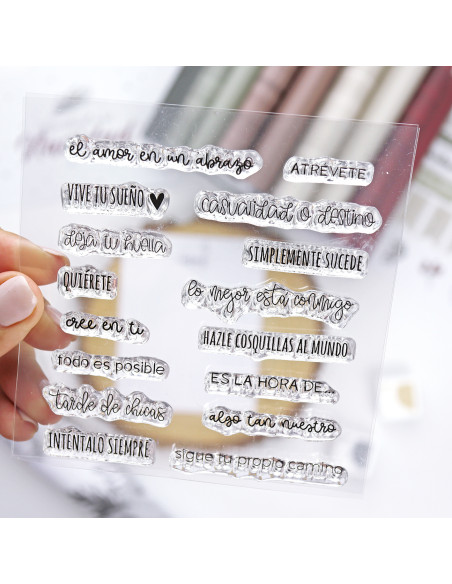 el amor en un abrazo
ATRÉVETE
VIVE TU SUEÑO
casualidad o destino
deja tu huella
SIMPLEMENTE SUCEDE
QUIÉRETE
lo mejor está conmigo
cree en ti
HAZLE COSQUILLAS AL MUNDO
todo es posible
ES LA HORA DE...
tarde de chicas
algo tan nuestro
INTÉNTALO SIEMPRE
sigue tu propio camino